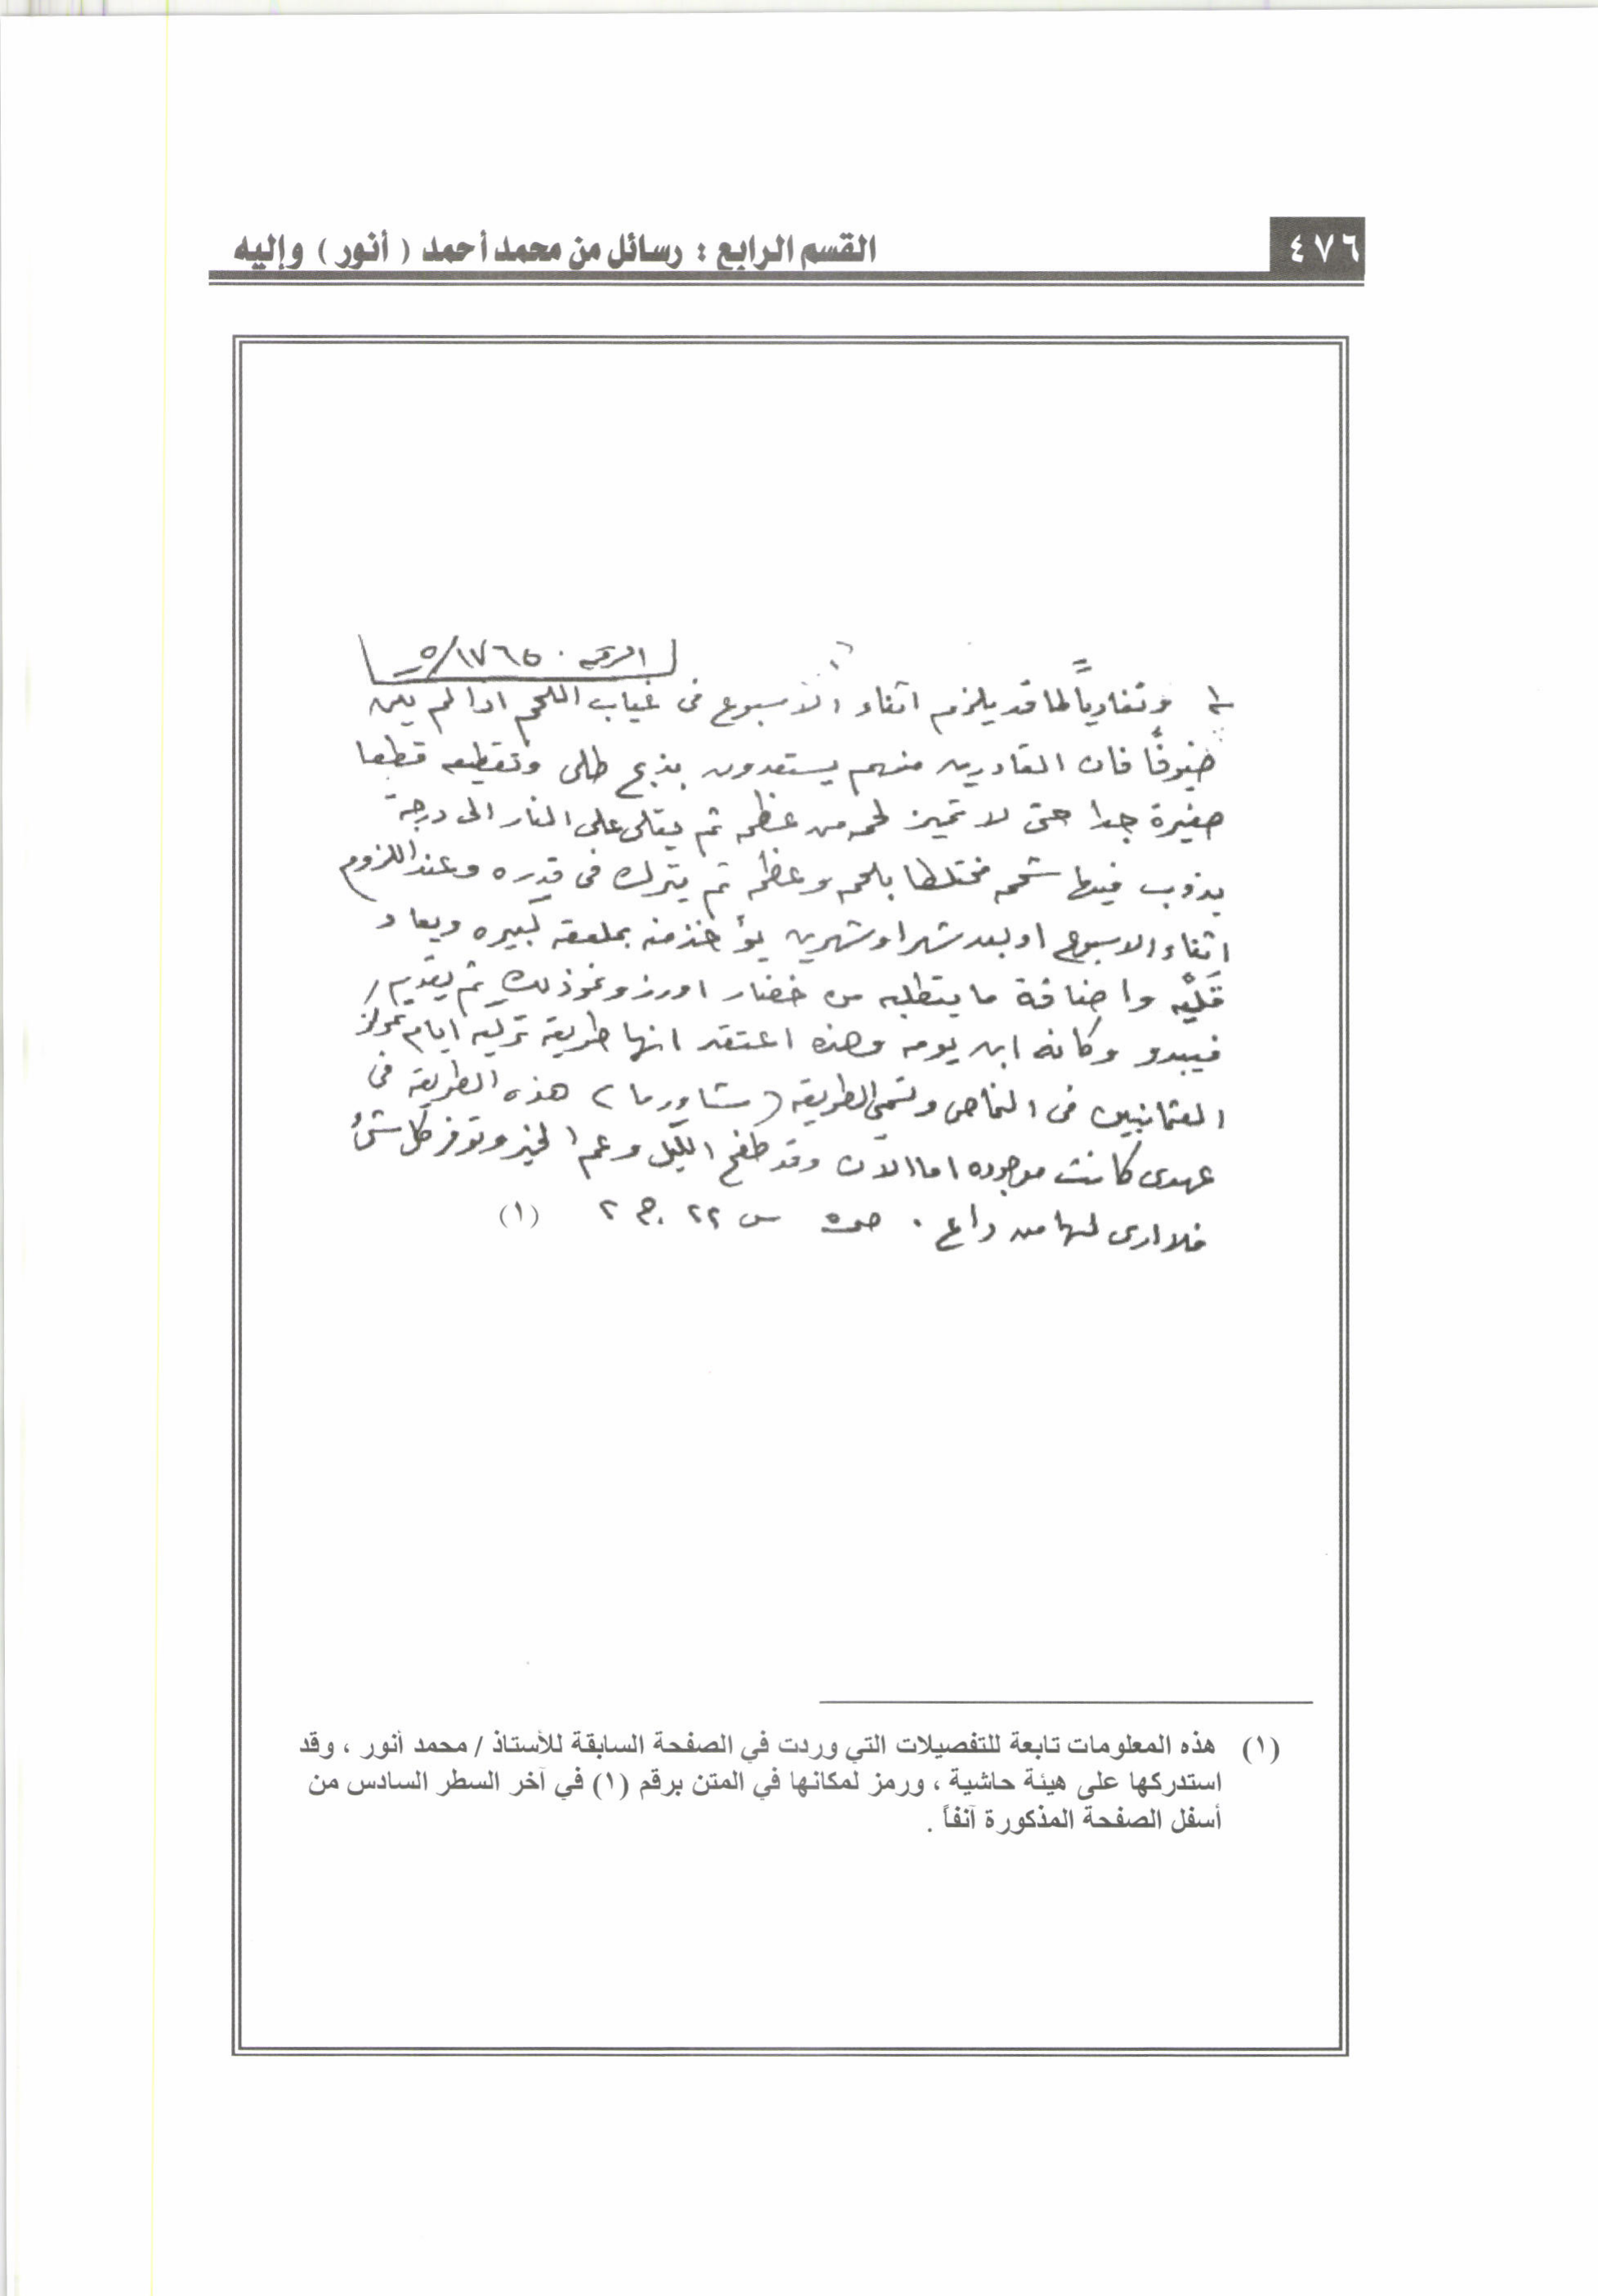 ٤٧٦
القسم الرابع : رسائل من محمد أحمد ( أنور ) وإليه
الرقم . ١٧٦٥/ر٥
١ـ وتفادياً لما قد يلزم اثناء الأسبوع فى غياب اللحم اذا لم يكن
ضيوفًا فان القادرين منهم يستعدون بذبح طلى وتقطيعه قطعا
صغيرة جدا حتى لا تميز لحمه من عظمه ثم يقلى على النار الى درجة
يذوب فيها شحمه مختلطا بلحمه وعظمه ثم يترك فى قدره وعند اللزوم
اثناء الاسبوع او بعد شهر او شهرين يؤخذ منه بملعقه كبيره ويعاد
قَليْه واضافة ما يتطلبه من خضار اورز ونحو ذلك ثم يقدم
فيبدو وكانه ابن يومه وهذه اعتقد انها طريقة تركيه ايام تمركز
العثمانيين فى النماص وتسمى الطريقه (شاورما) هذه الطريقه فى
عهدى كانت موجوده اما الآن وقد طفح الكيل وعم الخير وتوفر كل شئ
فلا ارى لها من داع . ص٥ س ٢٢ ج ٢ (١)
(١) هذه المعلومات تابعة للتفصيلات التي وردت في الصفحة السابقة للأستاذ / محمد أنور ، وقد
استدركها على هيئة حاشية ، ورمز لمكانها في المتن برقم (١) في آخر السطر السادس من
أسفل الصفحة المذكورة آنفاً .